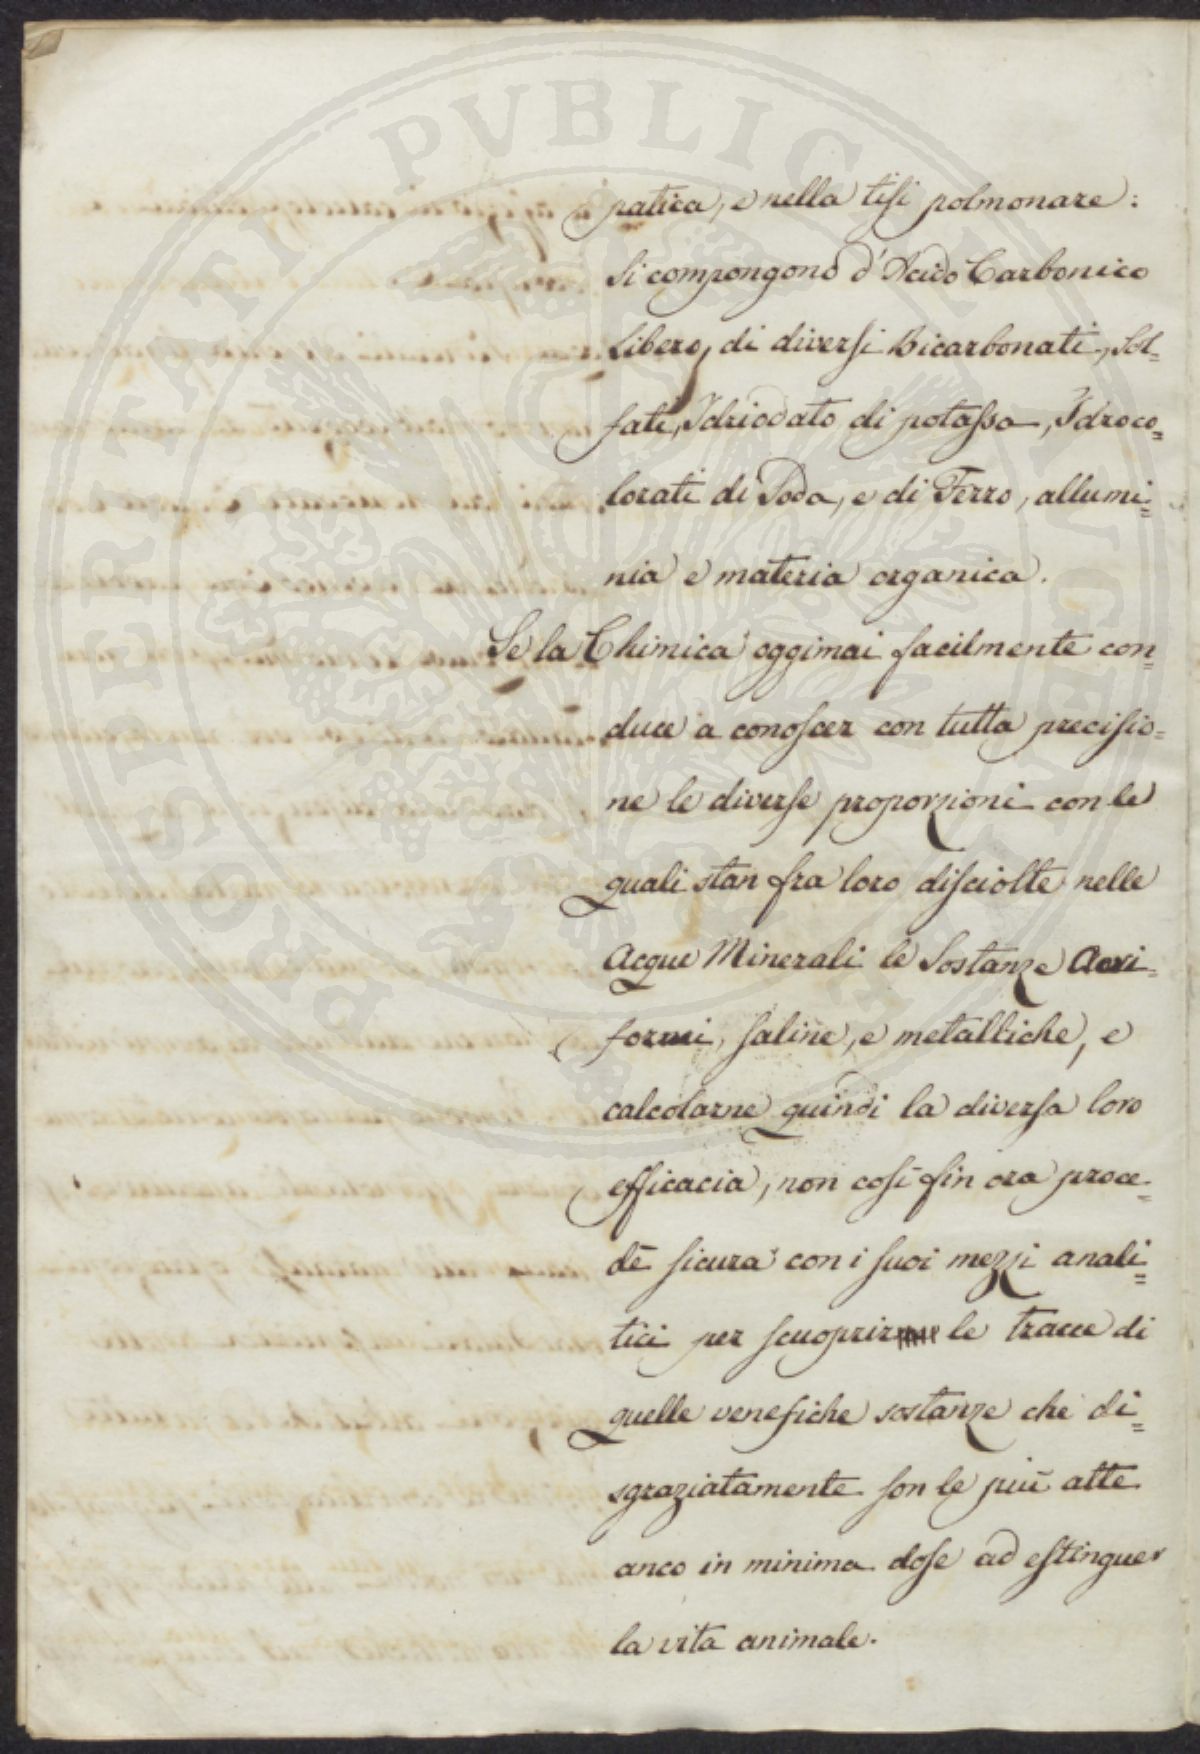 patica, e nella tisi polmonare:
Si compongono d'Acido Carbonico
Libero, di diversi Bicarbonati, Sol-
fati, Idriodato di potassa, Idroco=
lorati di Soda, e di Ferro, allumi=
nia e materia organica.
Se la Chimica oggimai facilmente con=
duce a conoscer con tutta precisio=
ne le diverse proporzioni con le
quali stan fra loro disciolte nelle
Acque Minerali le Sostanze Aeri=
formi, saline, e metalliche, e
calcolarne quindi la diversa loro
efficacia, non così fin ora proce=
dè sicura con i suoi mezzi anali=
tici per scuoprir le tracce di
quelle venefiche sostanze che di=
sgraziatamente son le più atte
anco in minima dose ad estinguer
la vita animale.